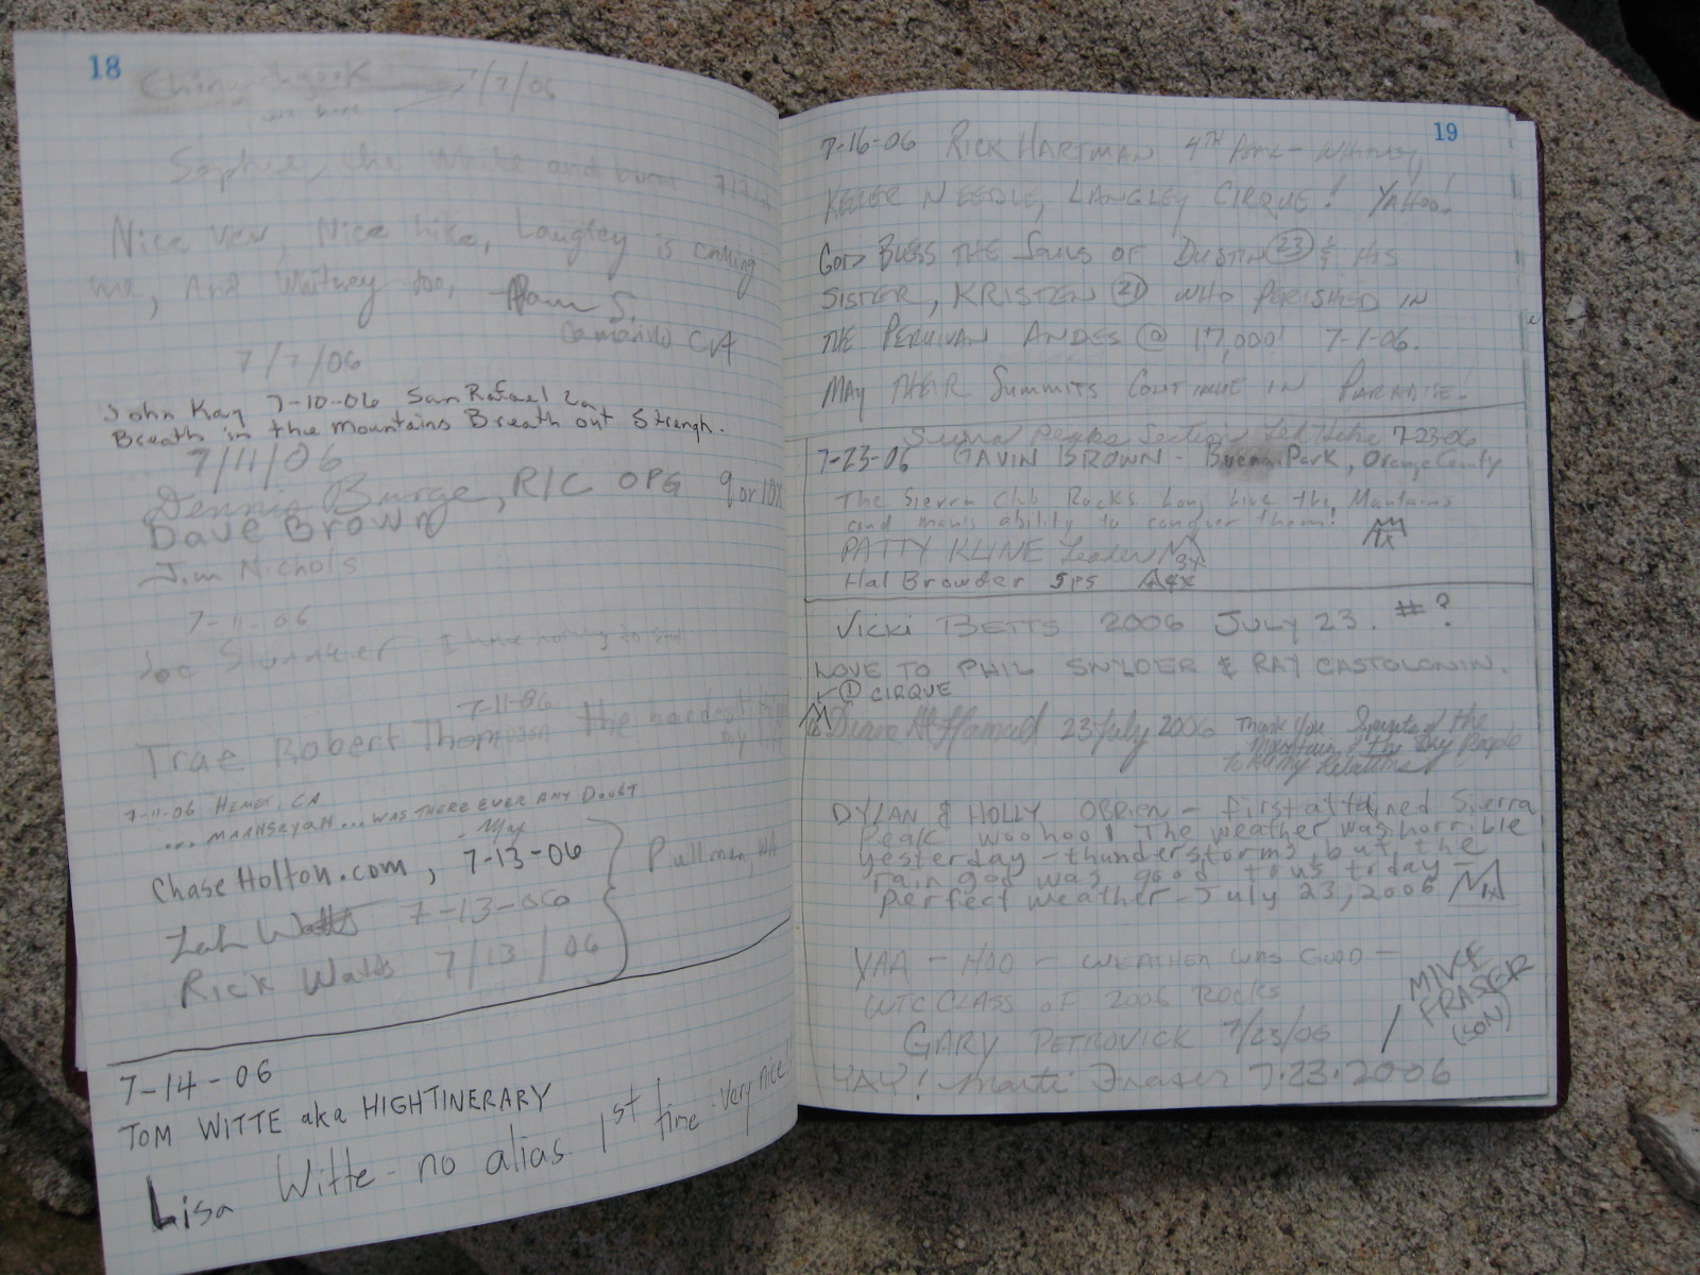 18
7/7/06
Sophie, the write and burn
Nice view, Nice hike, Langley is calling
me, And Whitney too, Pam S.
Camarillo CA
7/7/06
John Kay 7-10-06 San Rafael Ca
Breath in the mountains Breath out Strengh.
7/11/06
Dennis Burge, RIC OPG 9 or 10X
Dave Brown
Jim Nichols
7-11-06
I have nothing to say
7-11-06
Trae Robert Thompson the hardest
7-11-06 Hemet, CA
... WAS THERE EVER ANY DOUBT
ChaseHolton.com, 7-13-06
Pullman, WA
Zah Watts 7-13-06
Rick Watts 7/13/06
7-14-06
TOM WITTE aka HIGHTINERARY
Lisa Witte - no alias 1st time - very nice!
19
7-16-06 RICK HARTMAN 4TH Peak - Whitney,
KEELER NEEDLE, LANGLEY CIRQUE! YAHOO!
GOD BLESS THE SOULS OF DUSTIN 23 & HIS
SISTER, KRISTEN 21 WHO PERISHED IN
THE PERUVIAN ANDES @ 17,000' 7-1-06.
MAY THEIR SUMMITS CONTINUE IN PARADISE!
Sierra Peaks Section 7-23-06
7-23-06 GAVIN BROWN - Buena Park, Orange County
The Sierra Club Rocks. Long live the Mountains
and man's ability to conquer them! 1x
PATTY KLINE Leader 3x
Hal Browder SPS 4x
Vicki BETTS 2006 JULY 23. #?
LOVE TO PHIL SNYDER & RAY
① CIRQUE
Diane 23 July 2006 Thank You Spirits of the
Mountain & the Sky People
To All My Relations
DYLAN & HOLLY OBRIEN - first attained Sierra
Peak woohoo! The weather was horrible
yesterday - thunderstorms, but the
rain god was good to us today -
perfect weather - July 23, 2006 1x
YAA - HOO - WEATHER WAS GOOD -
WTC CLASS OF 2006 ROCKS
GARY PETROVICK 7/23/06 / MIKE
FRASER
(SON)
YAY! Marti Fraser 7.23.2006